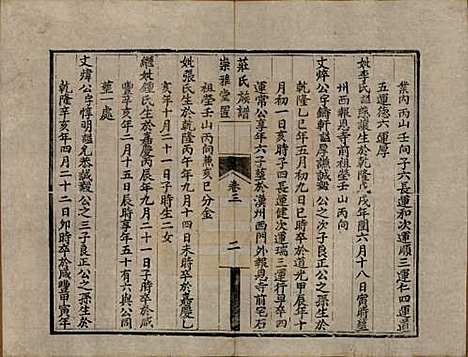 業內丙山壬向子六長運和次運順三運仁四運道
五運德六運厚
姓李氏諡慈讓生於乾隆戊戌年閏六月十八日寅時葬
州西報恩寺前祖塋壬山丙向
文焠公字鑄軒諡厚謙誠毅公之次子良正公之孫生於
乾隆乙巳年五月初九日巳時卒於道光甲辰年十
月初一日亥時子四長運健次運瑞三運行早卒四
運常公享年六十葬於漢州西門外報恩寺前宅石
祖塋壬山丙向兼亥巳分金
姓張氏生於乾隆丙午年九月十四日未時卒於嘉慶乙
亥年十月二十一日子時生二女
繼姓鍾氏生於嘉慶丙辰年九月二十一日辰時卒於咸
豐辛亥年二月十五日辰時享年五十有六與公同
葬一處
文煒公字惇明諡允恭誠毅公之三子良正公之孫生於
乾隆辛亥年四月二十二日卯時卒於咸豐甲寅年
莊氏族譜
崇雅堂置
卷三
二